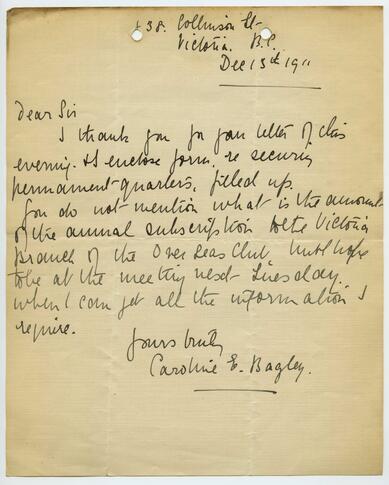 438. Collinson St-
Victoria. B.C.
Dec 13th 1911
Dear Sir
I thank you for your letter of this
evening. & I enclose form, re securing
permament-quarters, filled up.
You do not mention what is the amount
of the annual subscription to the Victoria
Branch of the Over Seas Club, but hope
to be at the meeting next Tuesday.
when I can get all the information I
require.
Yours truly
Caroline E. Bagley.